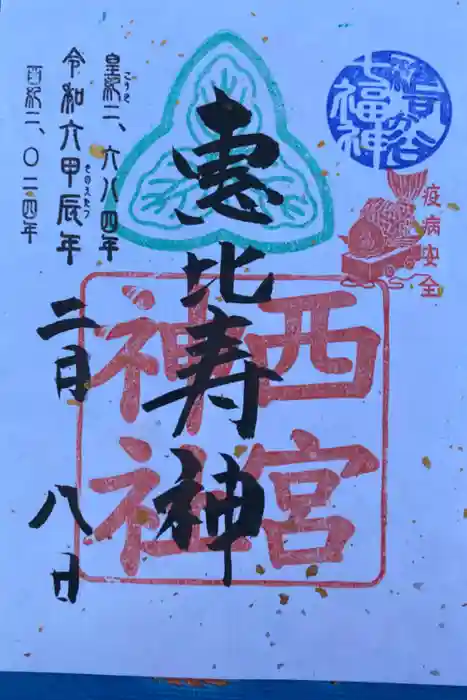 七福神
疫病安全
恵比寿神
西宮
神社
皇紀二、六八四年
こうき
令和六甲辰年
きのえたつ
西紀二、〇二四年
二月八日